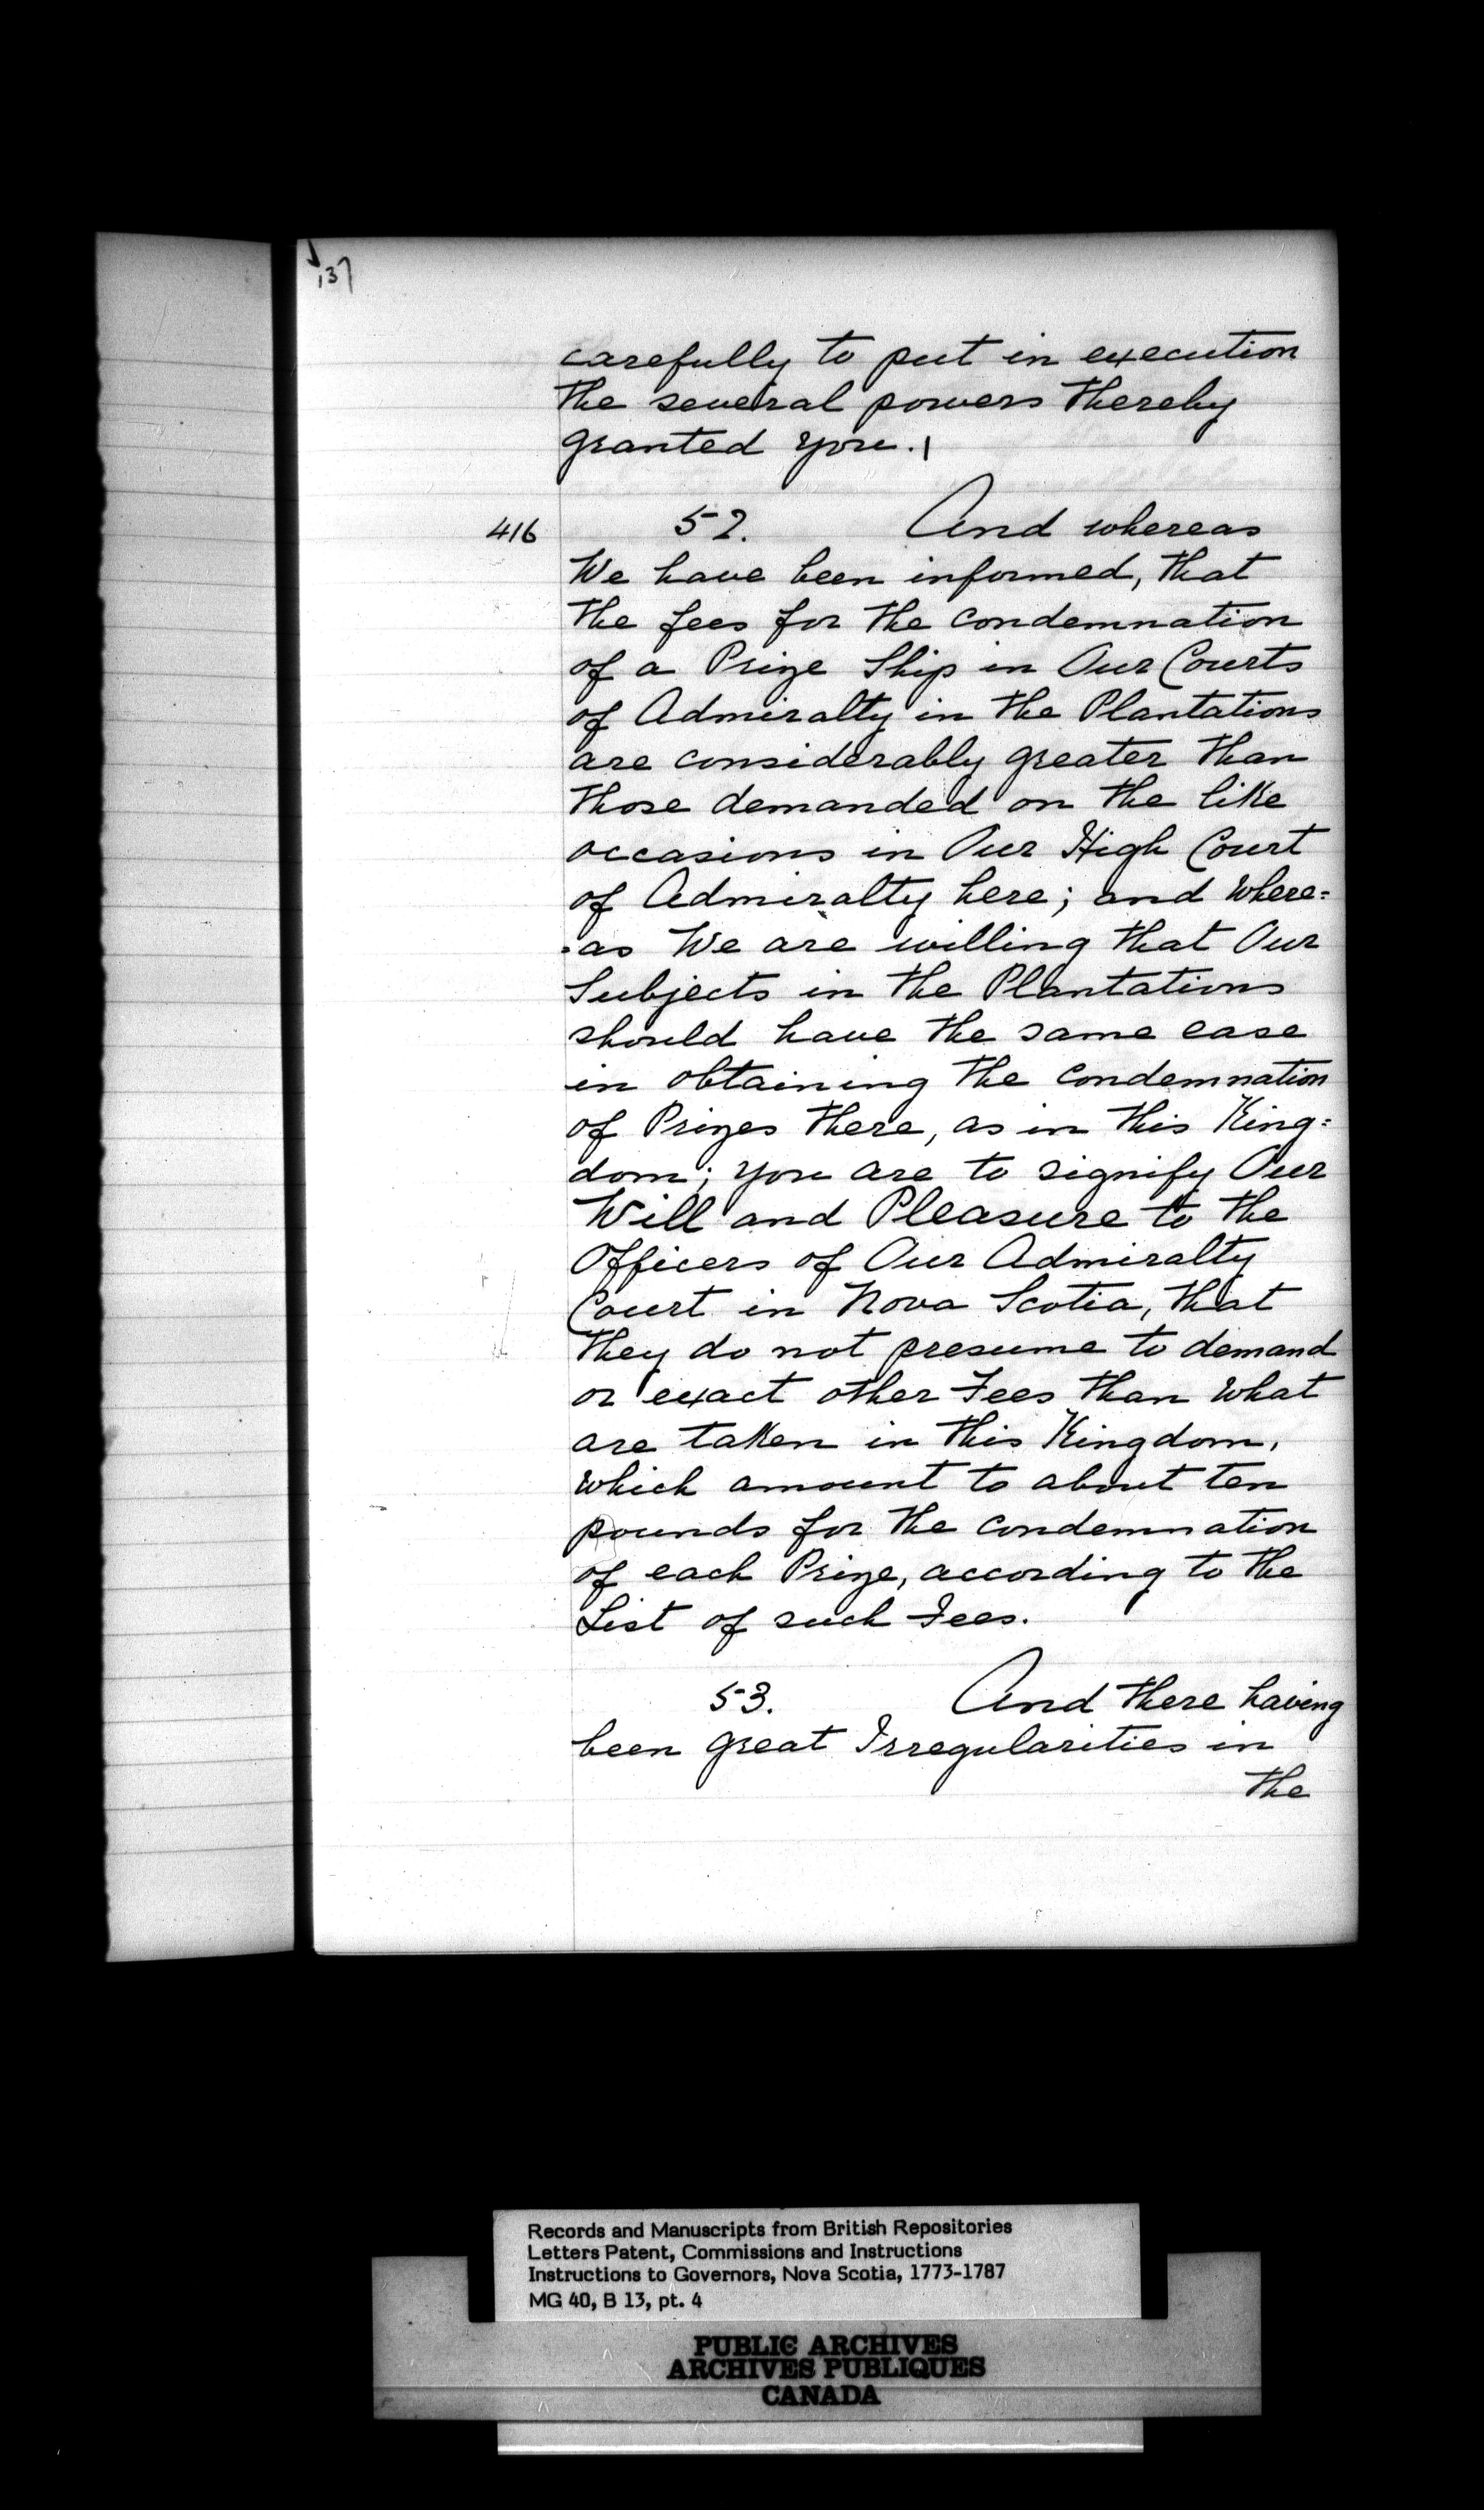 137
carefully to put in execution
the several powers thereby
granted you.|
416 52. And whereas
We have been informed, that
the fees for the condemnation
of a Prize Ship in Our Courts
of Admiralty in the Plantations
are considerably greater than
those demanded on the like
occasions in Our High Court
of Admiralty here; and Where=
=as We are willing that Our
Subjects in the Plantations
should have the same ease
in obtaining the condemnation
of Prizes there, as in this King=
dom; you are to signify Our
Will and Pleasure to the
Officers of Our Admiralty
Court in Nova Scotia, that
they do not presume to demand
or exact other Fees than what
are taken in this Kingdom,
which amount to about ten
pounds for the condemnation
of each Prize, according to the
List of such Fees.
53. And there having
been great Irregularities in
the
Records and Manuscripts from British Repositories
Letters Patent, Commissions and Instructions
Instructions to Governors, Nova Scotia, 1773-1787
MG 40, B 13, pt. 4
PUBLIC ARCHIVES
ARCHIVES PUBLIQUES
CANADA